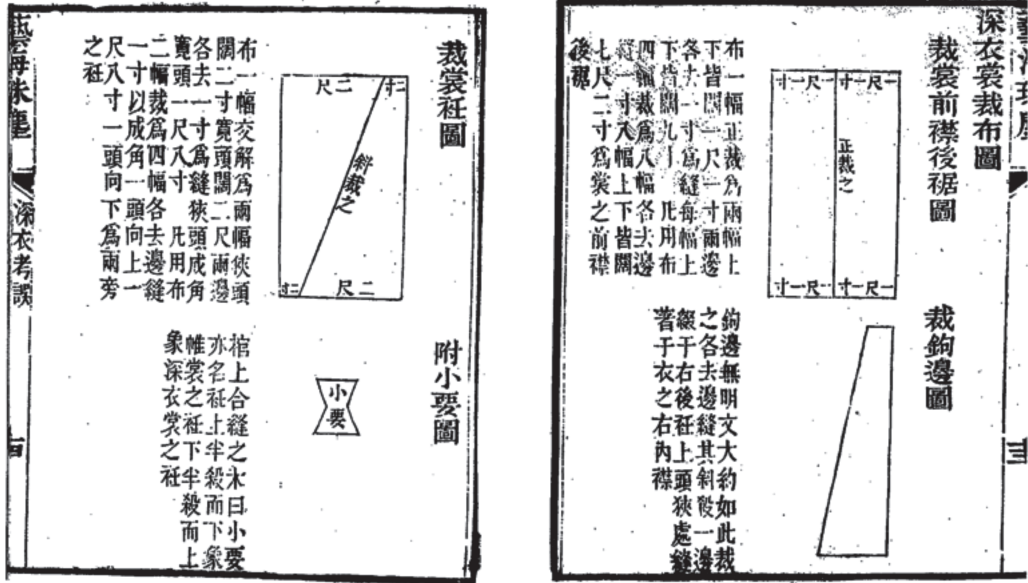 深衣裳裁布圖
裁裳前襟後裾圖
一尺一寸
一尺一寸
正裁之
一尺一寸
一尺一寸
布一幅正裁為兩幅上
下皆闊一尺一寸兩邊
各去一寸為縫每幅上
下皆闊九寸 凡用布
四幅裁為八幅各去邊
縫一寸八幅上下皆闊
七尺二寸為裳之前襟
後裾
裁鉤邊圖
鉤邊無明文大約如此裁
之各去邊縫其斜殺一邊
綴于右後衽上頭狹處縫
著于衣之右內襟
裁裳衽圖
二寸
二尺
斜裁之
二尺
二寸
布一幅交解為兩幅狹頭
闊二寸寬頭闊二尺兩邊
各去一寸為縫狹頭成角
寬頭一尺八寸 凡用布
二幅裁為四幅各去邊縫
一寸以成角一頭向上一
尺八寸一頭向下為兩旁
之衽
附小要圖
小要
棺上合縫之木曰小要
亦名衽上半殺而下象
帷裳之衽下半殺而上
象深衣裳之衽
藝海珠塵
深衣考誤